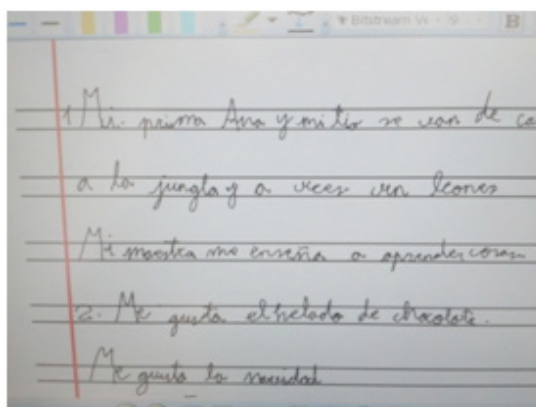 Bitstream Ve 9 B
1 Mi. prima Ana y mi tio se van de ca
a la jungla y a veces ven leones
Mi maestra me enseña a aprender cosas
2. Me gusta el helado de chocolate.
Me gusta la navidad